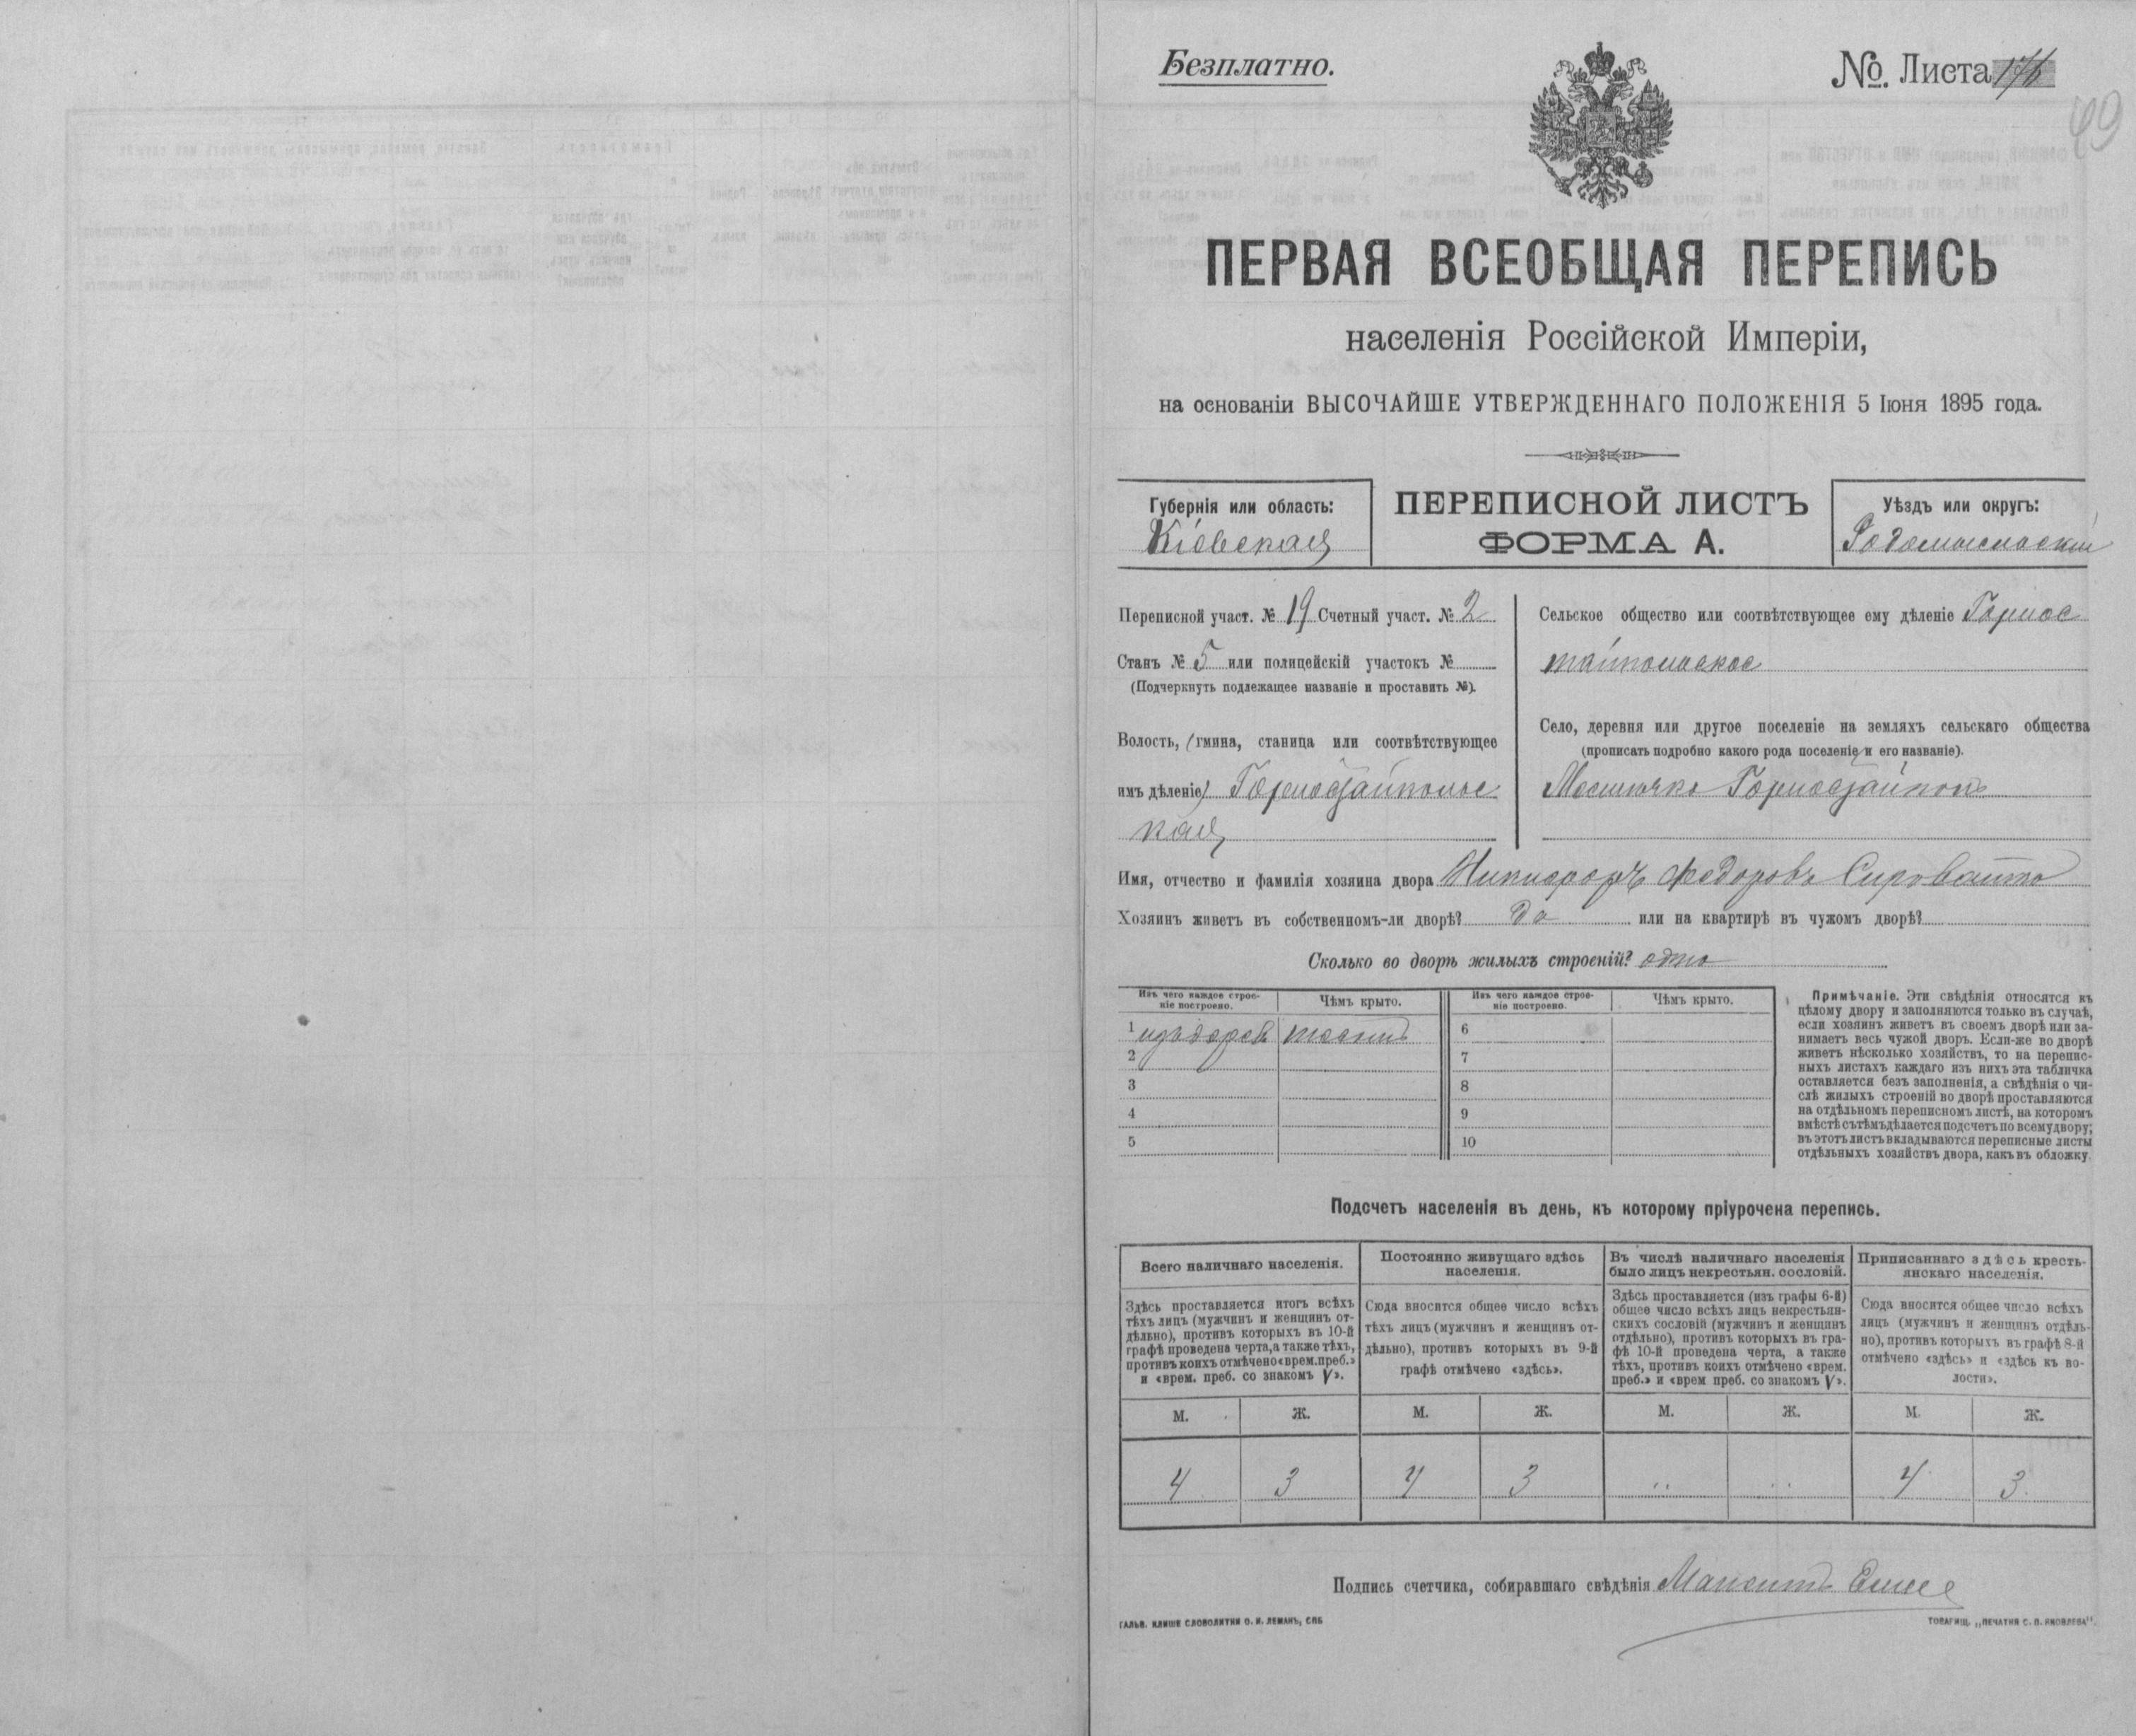 Безплатно.
№. Листа
49
ПЕРВАЯ ВСЕОБЩАЯ ПЕРЕПИСЬ
населенія Россійской Имперіи,
на основаніи ВЫСОЧАЙШЕ УТВЕРЖДЕННАГО ПОЛОЖЕНІЯ 5 Іюня 1895 года.
Губернія или область:
Кіевская
ПЕРЕПИСНОЙ ЛИСТЪ
ФОРМА А.
Уѣздъ или округъ:
Радомысльскій
Переписной участ. № 19 Счетный участ. № 2
Станъ № 5 или полицейскій участокъ №
(Подчеркнуть подлежащее названіе и проставить №).
Волость, (гмина, станица или соотвѣтствующее
имъ дѣленіе) Горностайпольс
кая
Сельское общество или соотвѣтствующее ему дѣленіе Горнос
тайпольское
Село, деревня или другое поселеніе на земляхъ сельскаго общества
(прописать подробно какого рода поселеніе и его названіе).
Местечко Горностайполь
Имя, отчество и фамилія хозяина двора Никифоръ Федоровъ Сироватко
Хозяинъ живетъ въ собственномъ-ли дворѣ? да или на квартирѣ въ чужомъ дворѣ?
Сколько во дворѣ жилыхъ строеній? одно
Изъ чего каждое строе-
ніе построено.
Чѣмъ крыто.
Изъ чего каждое строе-
ніе построено.
Чѣмъ крыто.
1 изъ дерев.
6
2
7
3
8
4
9
5
10
Примѣчаніе. Эти свѣдѣнія относятся къ
цѣлому двору и заполняются только въ случаѣ,
если хозяинъ живетъ въ своемъ дворѣ или за-
нимаетъ весь чужой дворъ. Если-же во дворѣ
живетъ нѣсколько хозяйствъ, то на перепис-
ныхъ листахъ каждаго изъ нихъ эта табличка
оставляется безъ заполненія, а свѣдѣнія о чи-
слѣ жилыхъ строеній во дворѣ проставляются
на отдѣльномъ переписномъ листѣ, на которомъ
вмѣстѣ съ тѣмъ дѣлается подсчетъ по всему двору;
въ этотъ листъ вкладываются переписные листы
отдѣльныхъ хозяйствъ двора, какъ въ обложку.
Подсчетъ населенія въ день, къ которому пріурочена перепись.
Всего наличнаго населенія.
Постоянно живущаго здѣсь
населенія.
Въ числѣ наличнаго населенія
было лицъ некрестьян. сословій.
Приписаннаго здѣсь кресть-
янскаго населенія.
Здѣсь проставляется итогъ всѣхъ
тѣхъ лицъ (мужчинъ и женщинъ от-
дѣльно), противъ которыхъ въ 10-й
графѣ проведена черта, а также тѣхъ,
противъ коихъ отмѣчено «врем. преб.»
и «врем. преб. со знакомъ V».
Сюда вносится общее число всѣхъ
тѣхъ лицъ (мужчинъ и женщинъ от-
дѣльно), противъ которыхъ въ 9-й
графѣ отмѣчено «здѣсь».
Здѣсь проставляется (изъ графы 6-й)
общее число всѣхъ лицъ некрестьян-
скихъ сословій (мужчинъ и женщинъ
отдѣльно), противъ которыхъ въ гра-
фѣ 10-й проведена черта, а также
тѣхъ, противъ коихъ отмѣчено «врем.
преб.» и «врем преб. со знакомъ V».
Сюда вносится общее число всѣхъ
лицъ (мужчинъ и женщинъ отдѣль-
но), противъ которыхъ въ графѣ 8-й
отмѣчено «здѣсь» и «здѣсь къ во-
лости».
М. Ж. М. Ж. М. Ж. М. Ж.
4 3 4 3 .. .. 4 3
Подпись счетчика, собиравшаго свѣдѣнія
ГАЛЬВ. КЛИШЕ СЛОВОЛИТНИ О. И. ЛЕМАНЪ, СПБ
ТОВАРИЩ. „ПЕЧАТНЯ С. П. ЯКОВЛЕВА".